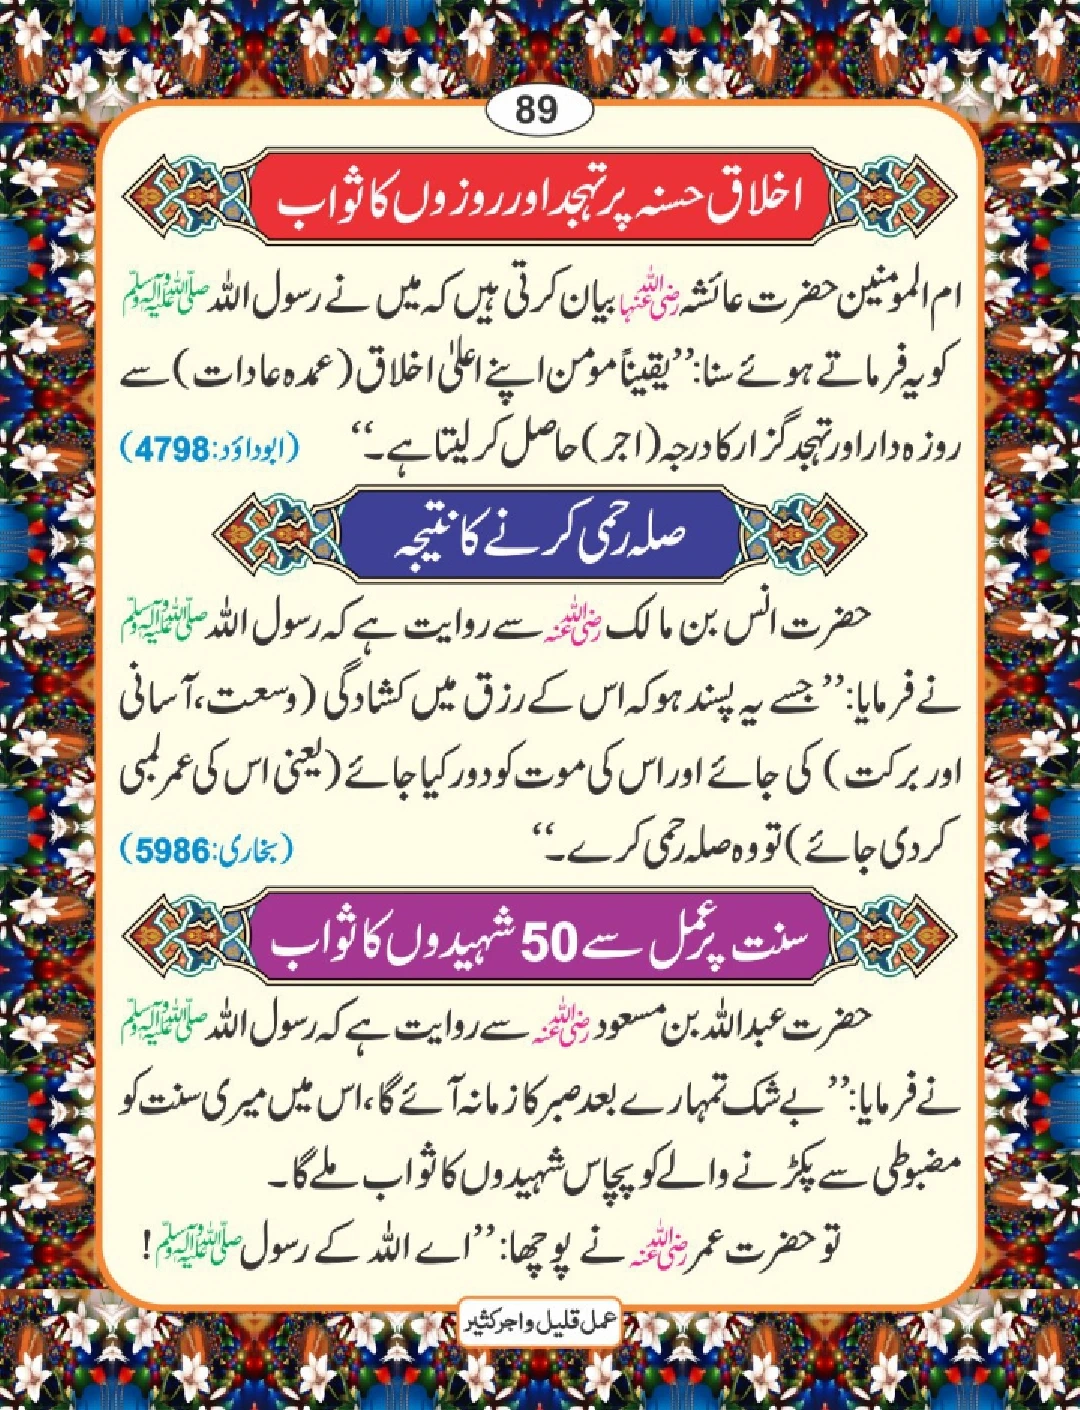 89
اخلاق حسنہ پر تہجد اور روزوں کا ثواب
ام المومنین حضرت عائشہ رضی اللہ عنہا بیان کرتی ہیں کہ میں نے رسول اللہ صلی اللہ علیہ وآلہ وسلم
کو یہ فرماتے ہوئے سنا: ’’یقیناً مومن اپنے اعلیٰ اخلاق (عمدہ عادات) سے
روزہ دار اور تہجد گزار کا درجہ (اجر) حاصل کر لیتا ہے۔‘‘ (ابوداؤد: 4798)
صلہ رحمی کرنے کا نتیجہ
حضرت انس بن مالک رضی اللہ عنہ سے روایت ہے کہ رسول اللہ صلی اللہ علیہ وآلہ وسلم
نے فرمایا: ’’جسے یہ پسند ہو کہ اس کے رزق میں کشادگی (وسعت، آسانی
اور برکت) کی جائے اور اس کی موت کو دور کیا جائے (یعنی اس کی عمر لمبی
کر دی جائے) تو وہ صلہ رحمی کرے۔‘‘ (بخاری: 5986)
سنت پر عمل سے 50 شہیدوں کا ثواب
حضرت عبداللہ بن مسعود رضی اللہ عنہ سے روایت ہے کہ رسول اللہ صلی اللہ علیہ وآلہ وسلم
نے فرمایا: ’’بے شک تمہارے بعد صبر کا زمانہ آئے گا، اس میں میری سنت کو
مضبوطی سے پکڑنے والے کو پچاس شہیدوں کا ثواب ملے گا۔
تو حضرت عمر رضی اللہ عنہ نے پوچھا: ’’اے اللہ کے رسول صلی اللہ علیہ وآلہ وسلم!
عمل قلیل و اجر کثیر